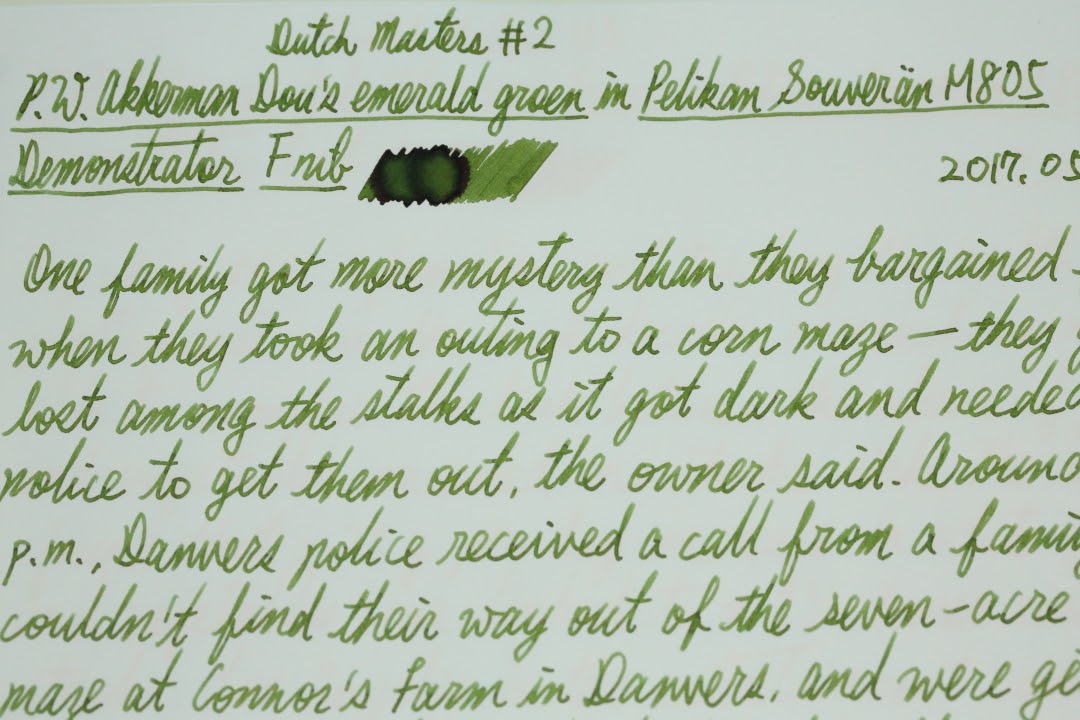 Dutch Masters #2
P.W. Akkerman Dou's emerald groen in Pelikan Souverän M805
Demonstrator F nib
2017.05
One family got more mystery than they bargained
when they took an outing to a corn maze — they
lost among the stalks as it got dark and needed
police to get them out, the owner said. Around
p.m., Danvers police received a call from a family
couldn't find their way out of the seven-acre
maze at Connor's Farm in Danvers, and were